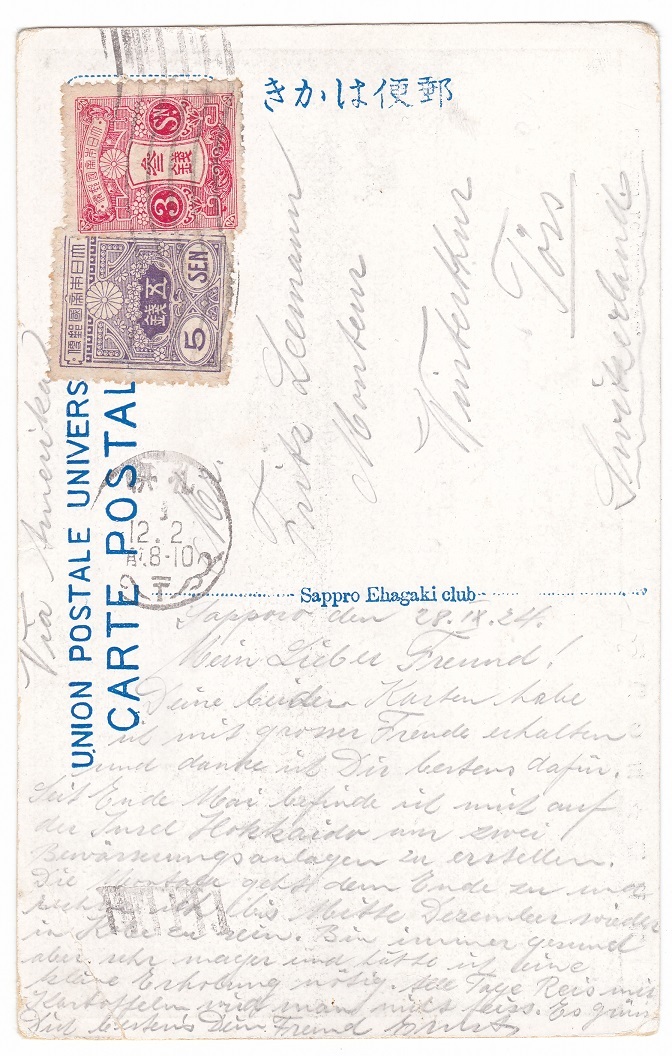 郵便はかき
大日本帝國郵便
3 Sn.
参銭
大日本帝國郵便
五銭
5 SEN
UNION POSTALE UNIVERS
CARTE POSTAL
Via Amerika
Fritz Leemann
Monteur
Winterthur
Töss
Switzerland
札幌
12.2
前8-10
Sappro Ehagaki club
Sapporo den 28.IX.24.
Mein Lieber Freund!
Deine beiden Karten habe
ich mit grosser Freude erhalten
und danke ich Dir bestens dafür.
Seit Ende Mai befinde ich mich auf
der Insel Hokkaido um zwei
Bewässerungsanlagen zu erstellen.
Die Montage geht dem Ende zu und
ich bis Mitte Dezember wieder
in Kobe zu sein. Bin immer gesund
aber sehr mager und hätte ich eine
kleine Erholung nötig. Alle Tage Reis mit
Kartoffeln wird man nicht feiss. Es grüsst
Dich bestens Dein Freund Ernst